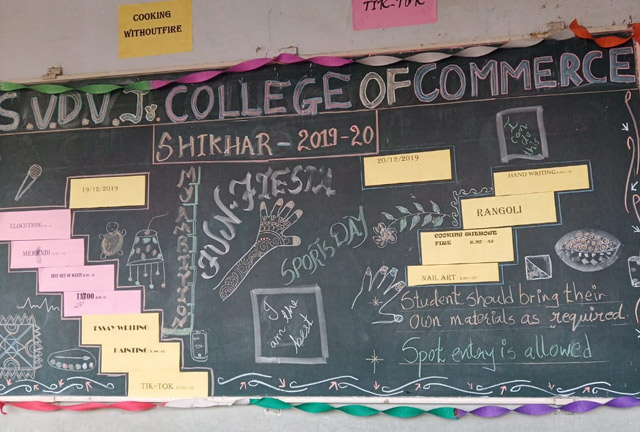 COOKING
WITHOUTFIRE
TIK-TOK
S.V.D.V.J's COLLEGE OF COMMERCE
SHIKHAR - 2019-20
I can do it
20/12/2019
HAND WRITING
19/12/2019
FUN-FIESTA
RANGOLI
ELOCUTION
SPORTS DAY
COOKING WITHOUT
FIRE
MEHENDI
BEST OUT OF WASTE
NAIL ART
TATOO
I
am the
best
Student should bring their
Own materials as required.
ESSAY WRITING
PAINTING
Spot entry is allowed
TIK-TOK